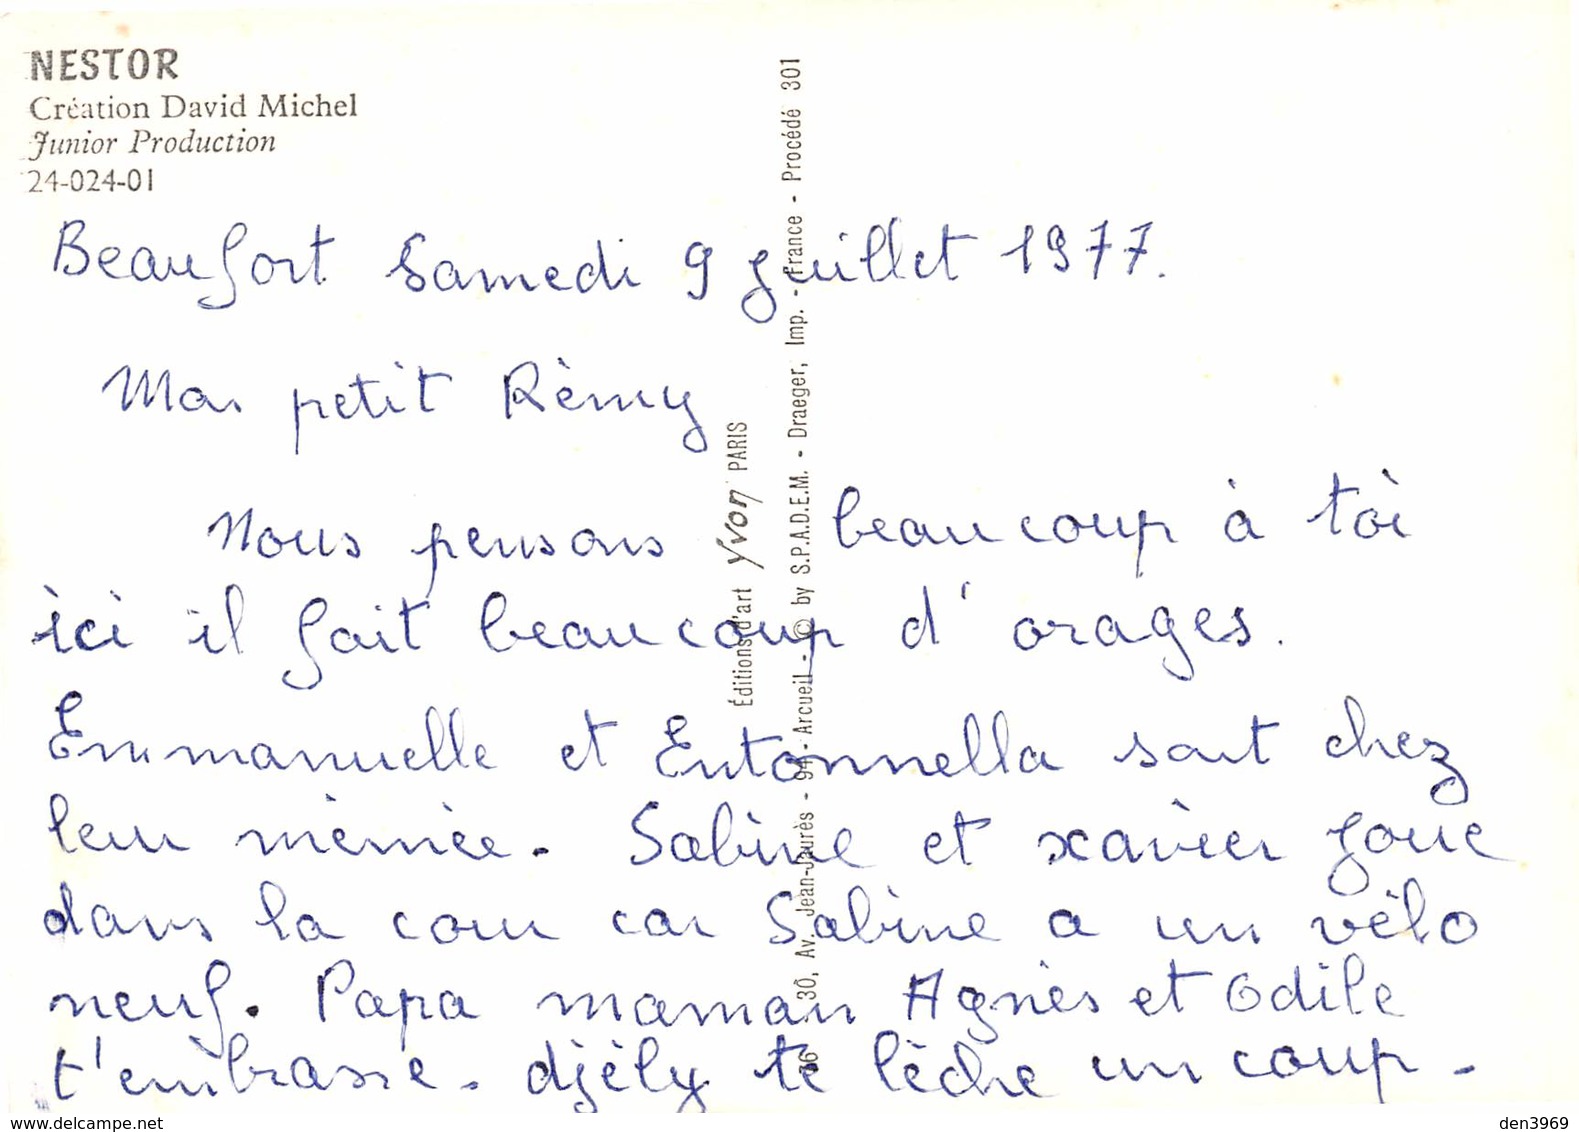 NESTOR
Création David Michel
Junior Production
24-024-01
Beaufort Samedi 9 Juillet 1977.
Mon petit Rémy
Nous pensons beaucoup à toi
ici il fait beaucoup d'orages.
Emmanuelle et Entonnella sont chez
leur mémée. Sabine et xavier joue
dans la cour car Sabine a un vélo
neuf. Papa maman Agnès et Odile
t'embrasse. djély te lèche un coup.
Éditions d'art Yvon PARIS
30, Av. Jean-Jaurès - 94 - Arcueil - © by S.P.A.D.E.M. - Draeger, Imp. - France - Procédé 301
www.delcampe.net
den3969